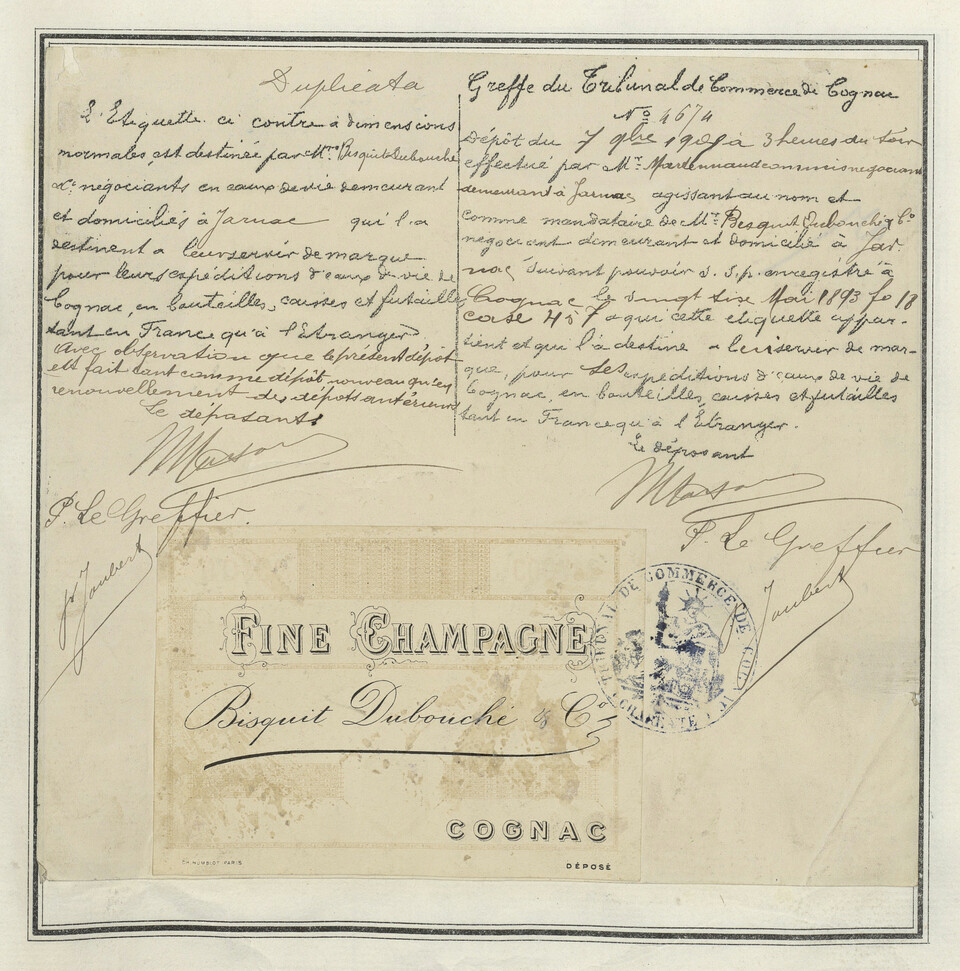 Duplicata
L'Etiquette ci contre à dimensions
normales, est destinée par Mrs Bisquit Dubouché
& Cie négociants en eaux de vie demeurant
et domiciliés à Jarnac qui l'a
destinent a leur servir de marque
pour leurs expéditions d'eaux de vie de
Cognac, en bouteilles, caisses et futailles
tant en France qu'à l'Etranger
Avec observation que le présent dépôt
est fait tant comme dépôt nouveau qu'en
renouvellement des dépôts antérieurs
Le déposant
P. Le Greffier.
Joubert
Greffe du Tribunal de Commerce de Cognac
No 4674
Dépôt du 7 9bre à 3 heures du soir
effectué par Mr commis negociant
demeurant à Jarnac agissant au nom et
comme mandataire de Mrs Bisquit Dubouché & Co
négociant demeurant et domicilié à Jar
nac suivant pouvoir s. s. p. enregistré à
Cognac le vingt six Mai 1893 fo 18
case 457 a qui cette etiquette appar-
tient et qui l'à destine a leur servir de mar-
que, pour ses expéditions d'eaux de vie de
Cognac, en bouteilles caisses et futailles
tant en France qu'à l'Étranger.
Le déposant
P. Le Greffier
Joubert
FINE CHAMPAGNE
Bisquit Dubouché & Co
COGNAC
CH. HUMBLOT PARIS
DÉPOSÉ
TRIBUNAL DE COMMERCE DE
CHARENTE